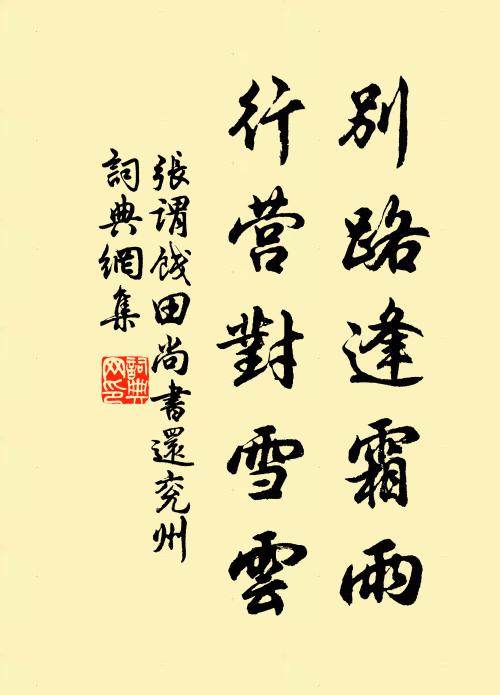 別路逢霜雨
行营對雪雲
張謂餞田尚書還兖州
詞典網集
詞典
网印